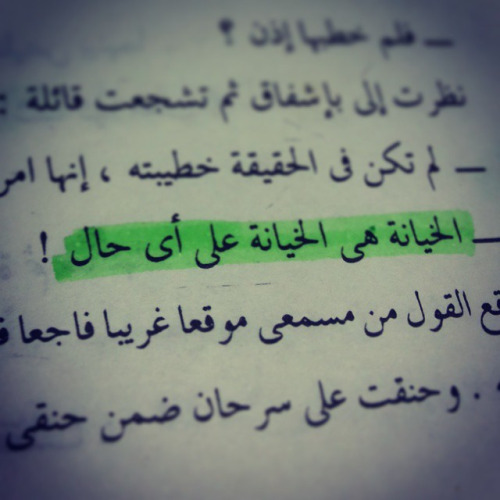 ـ فلم خطبها إذن ؟
نظرت إلى بإشفاق ثم تشجعت قائلة :
ـ لم تكن فى الحقيقة خطيبته ، إنها امر
ـ الخيانة هى الخيانة على أى حال !
قع القول من مسمعى موقعا غريبا فاجعا ف
. وحنقت على سرحان ضمن حنقى